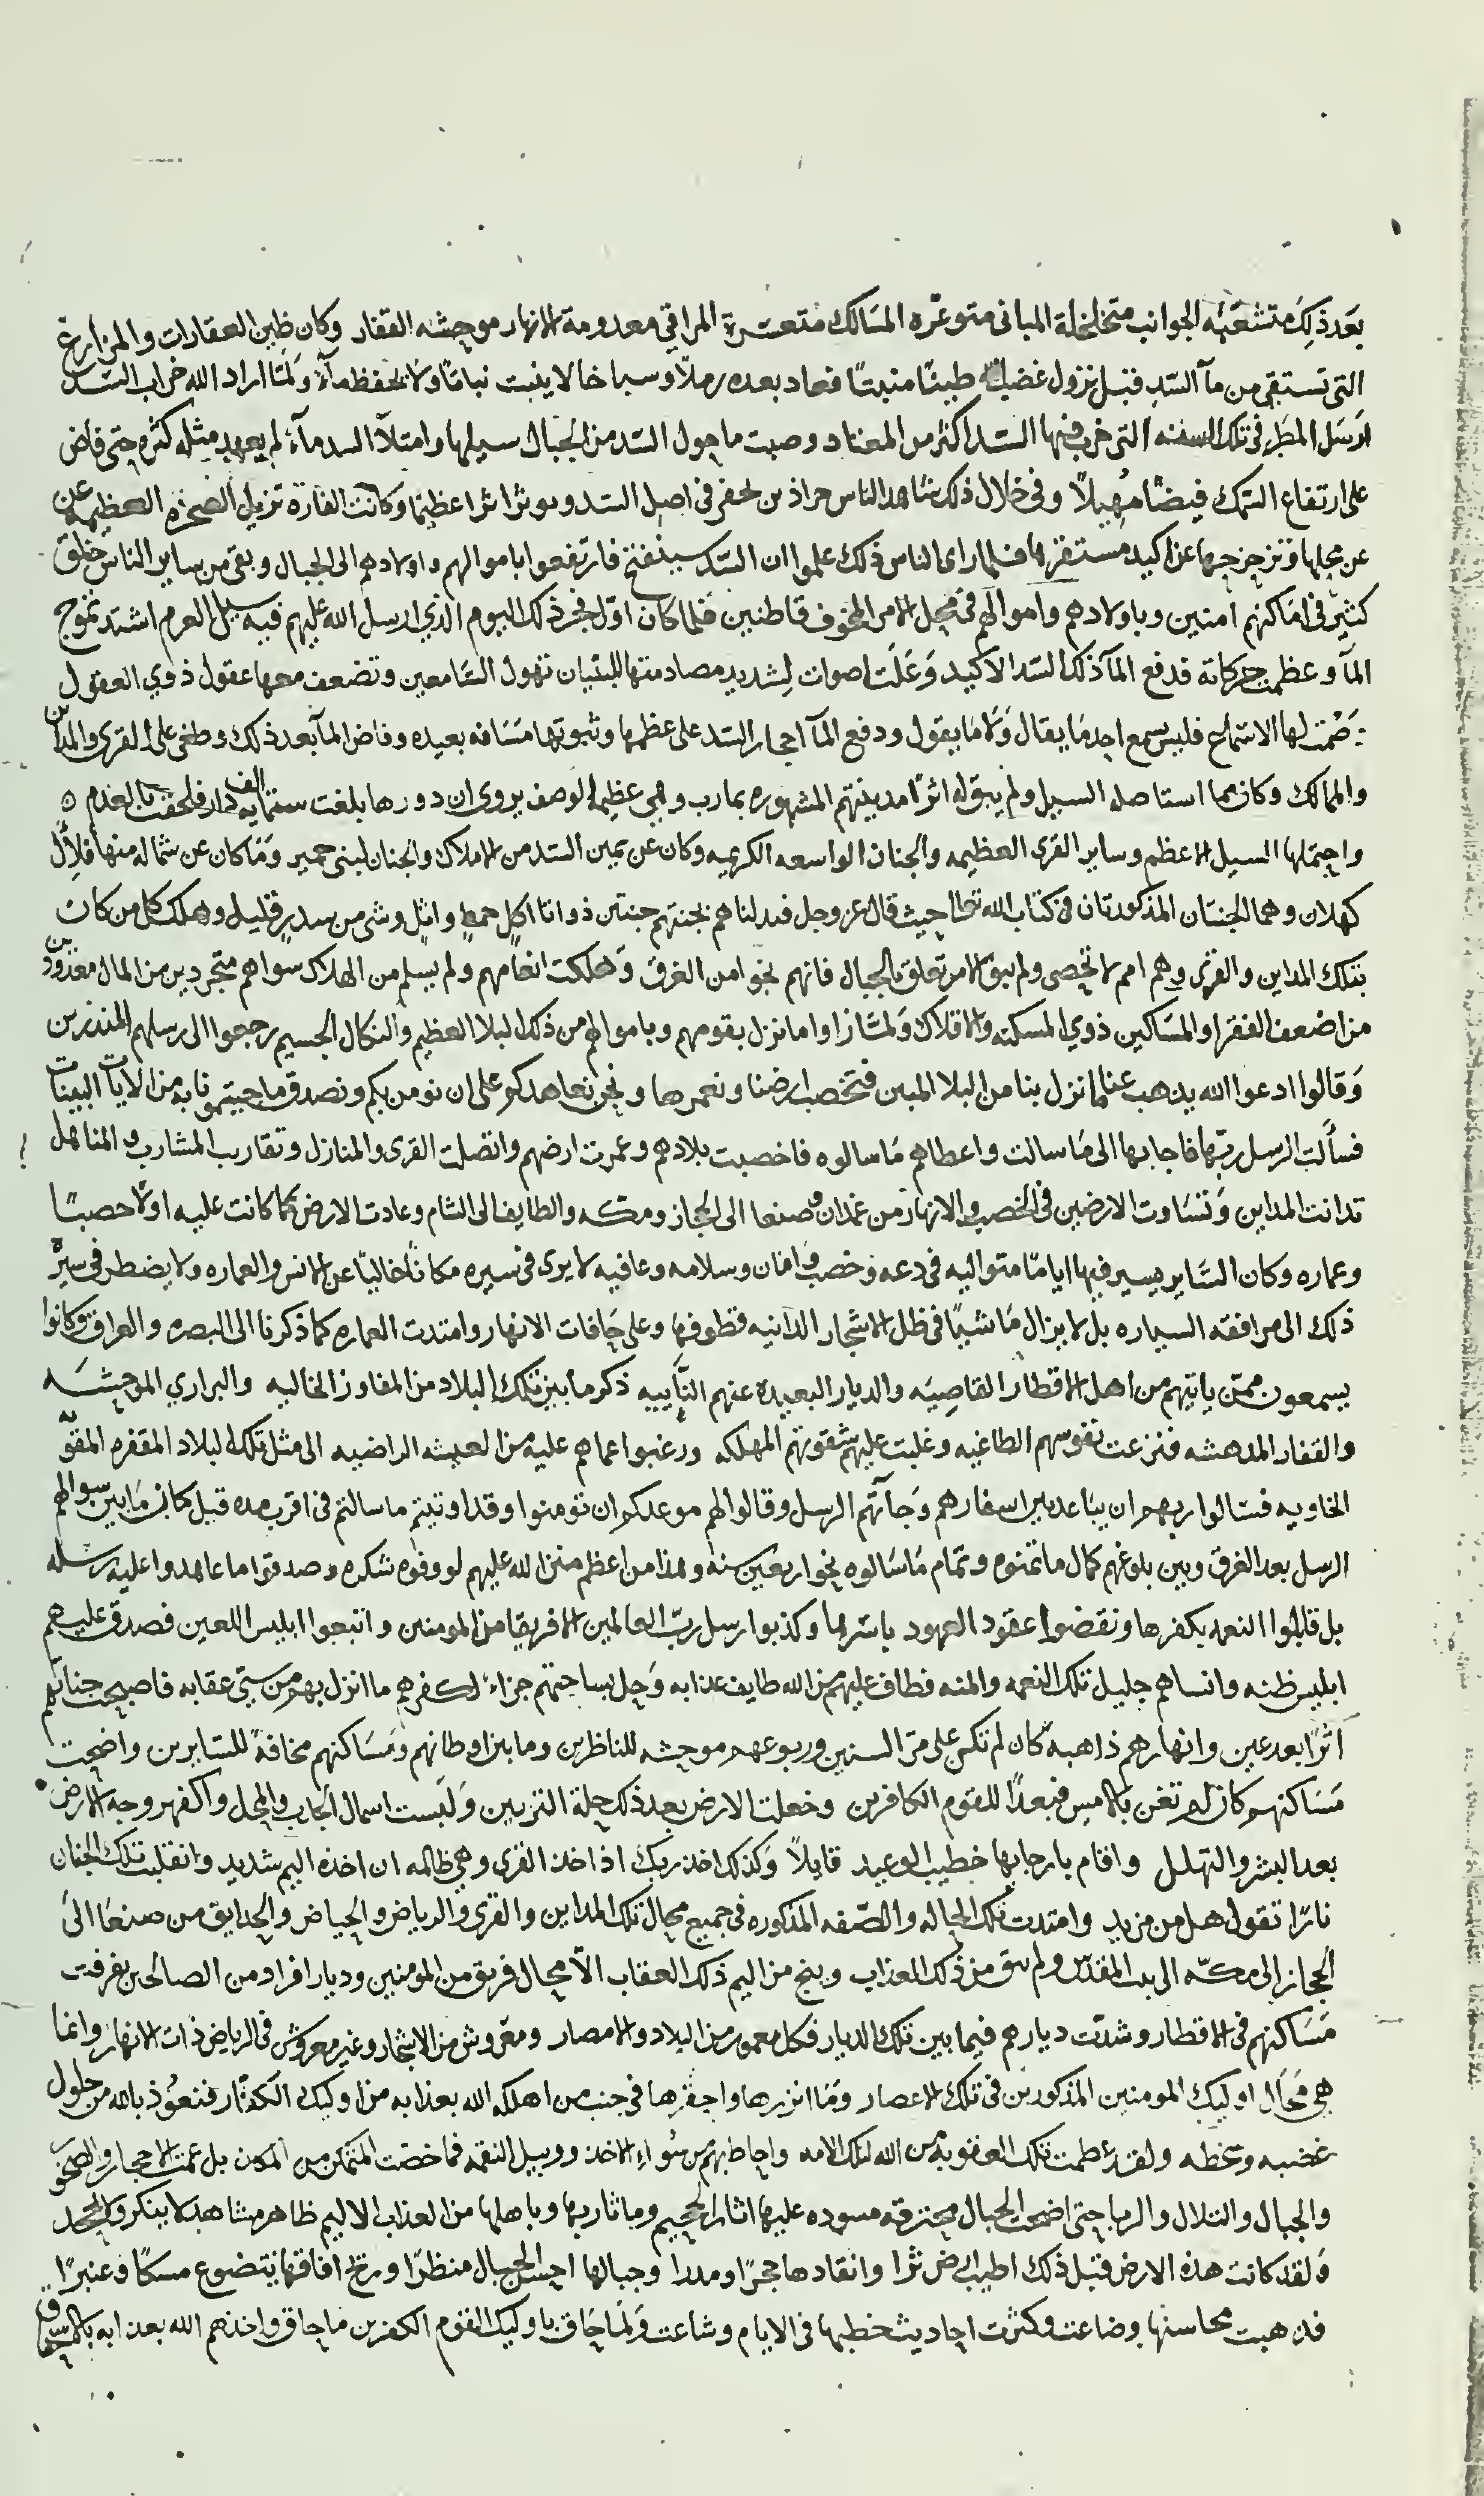 بعد ذلك متشعبه الجوانب متخلخلة المبانى متوعّره المسالك متعسرة المراقي معدومة الانهار موحشه القفار وكان طين العقارات والمزارع
التى تستقى من مآ السد قبل نزول غضب الله طينًا منبتًا فعاد بعده رملًا وسباخا لا ينبت نباتا ولا يحفظ مآءً ولمّا اراد الله خراب السد
ارسل المطر فى تلك السنه التى خرب فيها السد اكثر من المعتاد وصبت ما حول السد من الجبال سيلها وامتلأ السد مآءً لم يعهد مثله كثره حتى فاض
على ارتفاع السمك فيضًا مهيلًا وفى خلال ذلك شاهد الناس جراذين تحفر فى اصل السد وتوثر اثرا عظيما وكانت الفارة تزيل الصخره العظيمه عن
عن محلها وتزحزحها عن اكيد مستقرها فلما راى الناس ذلك علموا ان السد سينفتح فارتفعوا باموالهم واولادهم الى الجبال وبقى من ساير الناس خلق
كثير فى اماكنهم امنين وباولادهم واموالهم فى محل الامر المخوف قاطنين فلما كان اول فجر ذلك اليوم الذي ارسل الله عليهم فيه سيل العرم اشتد تموج
المآ وعظمت حركاته فدفع المآ ذلك السد الاكيد وعلت اصوات لشديد مصادمتها للبنيان تهول السامعين وتضعف معها عقول ذوي العقول
وصمت لها الاسماع فليس يسمع احد ما يقال ولا ما يقول ودفع المآ احجار السد على عظمها وثبوتها مسافه بعيده وفاض المآ بعد ذلك وطغى على القرى والمداين
والممالك وكان مما استاصله السيل ولم يبق له اثرا مدينتهم المشهوره بمارب وهي عظيمة الوصف يروى ان دورها بلغت ستمايه الف دار فلحقت بالعدم
واحتملها السيل الاعظم وساير القرى العظيمه والجنان الواسعه الكريمه وكان عن يمين السد من الاملاك والجنان لبنى حمير وما كان عن شماله منها فلال
كهلان وهما الجنتان المذكورتان فى كتاب الله تعالى حيث قال عز وجل فبدلناهم بجنتيهم جنتين ذواتا اكل خمط واثل وشى من سدر قليل وهلك كل من كان
بتلك المداين والقرى وهم امم لا تحصى ولم يبق الا من تعلق بالجبال فانهم نجوا من الغرق وهلكت انعامهم ولم يسلم من الهلاك سواهم متجردين من المال معدودين
من اضعف الفقرا والمساكين ذوي المسكنه والاقلاك ولما راوا ما نزل بقومهم وباموالهم من ذلك البلا العظيم والنكال الجسيم رجعوا الى رسلهم المنذرين
وقالوا ادعوا الله يذهب عنا ما نزل بنا من البلا المبين فتخصب ارضنا ونعمرها ونحن نعاهدكم على ان نومن بكم ونصدق ما جيتمونا به من الايات البينات
فسألت الرسل ربها فاجابها الى ما سالت واعطاهم ما سالوه فاخصبت بلادهم وعمرت ارضهم واتصلت القرى والمنازل وتقارب المشارب والمناهل
تدانت المداين وتساوت الارضين فى الخصب والانهار من غمدان وصنعا الى الحجاز ومكه والطايف الى الشام وعادت الارض كما كانت عليه اولا خصبًا
وعماره وكان الساير يسير فيها اياما متواليه فى دعه وخصب وامان وسلامه وعافيه لا يرى فى سيره مكانًا خاليًا عن الانس والعماره ولا يضطر فى سيره
ذلك الى مرافقه السياره بل لا يزال ماشيًا فى ظل الاشجار الدانيه قطوفها وعلى حافات الانهار وامتدت العماره كما ذكرنا الى البصره والعراق وكانوا
يسمعون ممن ياتيهم من اهل الاقطار القاصيه والديار البعيده عنهم النأييه ذكر ما بين تلك البلاد من المفاوز الخاليه والبراري الموحشه
والقفار المدهشه فنزعت نفوسهم الطاغيه وغلبت عليهم شقوتهم المهلكه ورغبوا عما هم عليه من العيشه الراضيه الى مثل تلك البلاد المقفره المقوّ
الخاويه فسالوا ربهم ان يباعد بين اسفارهم وجآتهم الرسل وقالوا لهم موعدكم ان تومنوا وقد اوتيتم ما سالتم فى اقرب مده قيل كان ما بين سوالهم
الرسل بعد الغرق وبين بلوغهم كمال ما تمنوه وتمام ما سالوه نحو اربعين سنه وهذا من اعظم منن الله عليهم لو وفوه شكره وصدقوا ما عاهدوا عليه رسله
بل قابلوا النعمه بكفرها ونقضوا عقود العهود باسرها وكذبوا رسل ربّ العالمين الا فريقا من المومنين واتبعوا ابليس اللعين فصدق عليهم
ابليس ظنه وانساهم جليل تلك النعمه والمنه فطاف عليهم من الله طايف عذابه وحل بساحتهم جزاءً لكفرهم ما انزل بهم من سيى عقابه فاصبحت جناتهم
اثرًا بعد عين وانهارهم ذاهبه كان لم تكن على مرّ السنين وربوعهم موحشه للناظرين وما بين اوطانهم ومساكنهم مخافةً للسايرين واضحت
مساكنهم كان لم تغن بالامس فبعدًا للقوم الكافرين وخلعت الارض بعد ذلك حلة التزيين ولبست اسمال الجدب والمحل واكفهر وجه الارض
بعد البشر والتهلل واقام بارجايها خطيب الوعيد قايلاً وكذلك اخذ ربك اذا اخذ القرى وهي ظالمه ان اخذه اليم شديد وانقلبت تلك الجنان
نارًا تقول هل من مزيد وامتدت تلك الحاله والصفه المذكوره فى جميع محال تلك المداين والقرى والرياض والحياض والحدايق من صنعا الى
الحجاز الى مكه الى بيت المقدس ولم يبق من ذلك العذاب وينج من اليم ذلك العقاب الا محال فريق من المومنين وديار افراد من الصالحين تفرقت
مساكنهم فى الاقطار وشتت ديارهم فيما بين تلك الديار فكل معمور من البلاد والامصار ومعروش من الاشجار وغير معروش فى الرياض ذات الانهار وانما
هي محال اوليك المومنين المذكورين فى تلك الاعصار وما انزرها واحقرها فى جنب من اهلكه الله بعذابه من اوليك الكفار فنعوذ بالله من حلول
غضبه وسخطه ولقد عظمت تلك العقوبه من الله لتلك الامه واحاط بهم من سوء الاخذ ووبيل النقمه فما خصت المتمكن من المكان بل عمت الاحجار والصخور
والجبال والتلال والربا حتى اضحت الجبال محترقة مسوده عليها اثار الجحيم وما ثار بها وباهلها من العذاب الاليم ظاهر مشاهد لا ينكر ولا يجحد
ولقد كانت هذه الارض قبل ذلك اطيب ارض ثرا وانقاها حجرًا ومدرا وجبالها احسن الجبال منظرًا وريح افاقها يتضوع مسكًا وعنبرًا
فذهبت محاسنها وضاعت وكثرت احاديث خطبها فى الايام وشاعت ولما حاق باوليك القوم الكفرين ما حاق واخذهم الله بعذابه